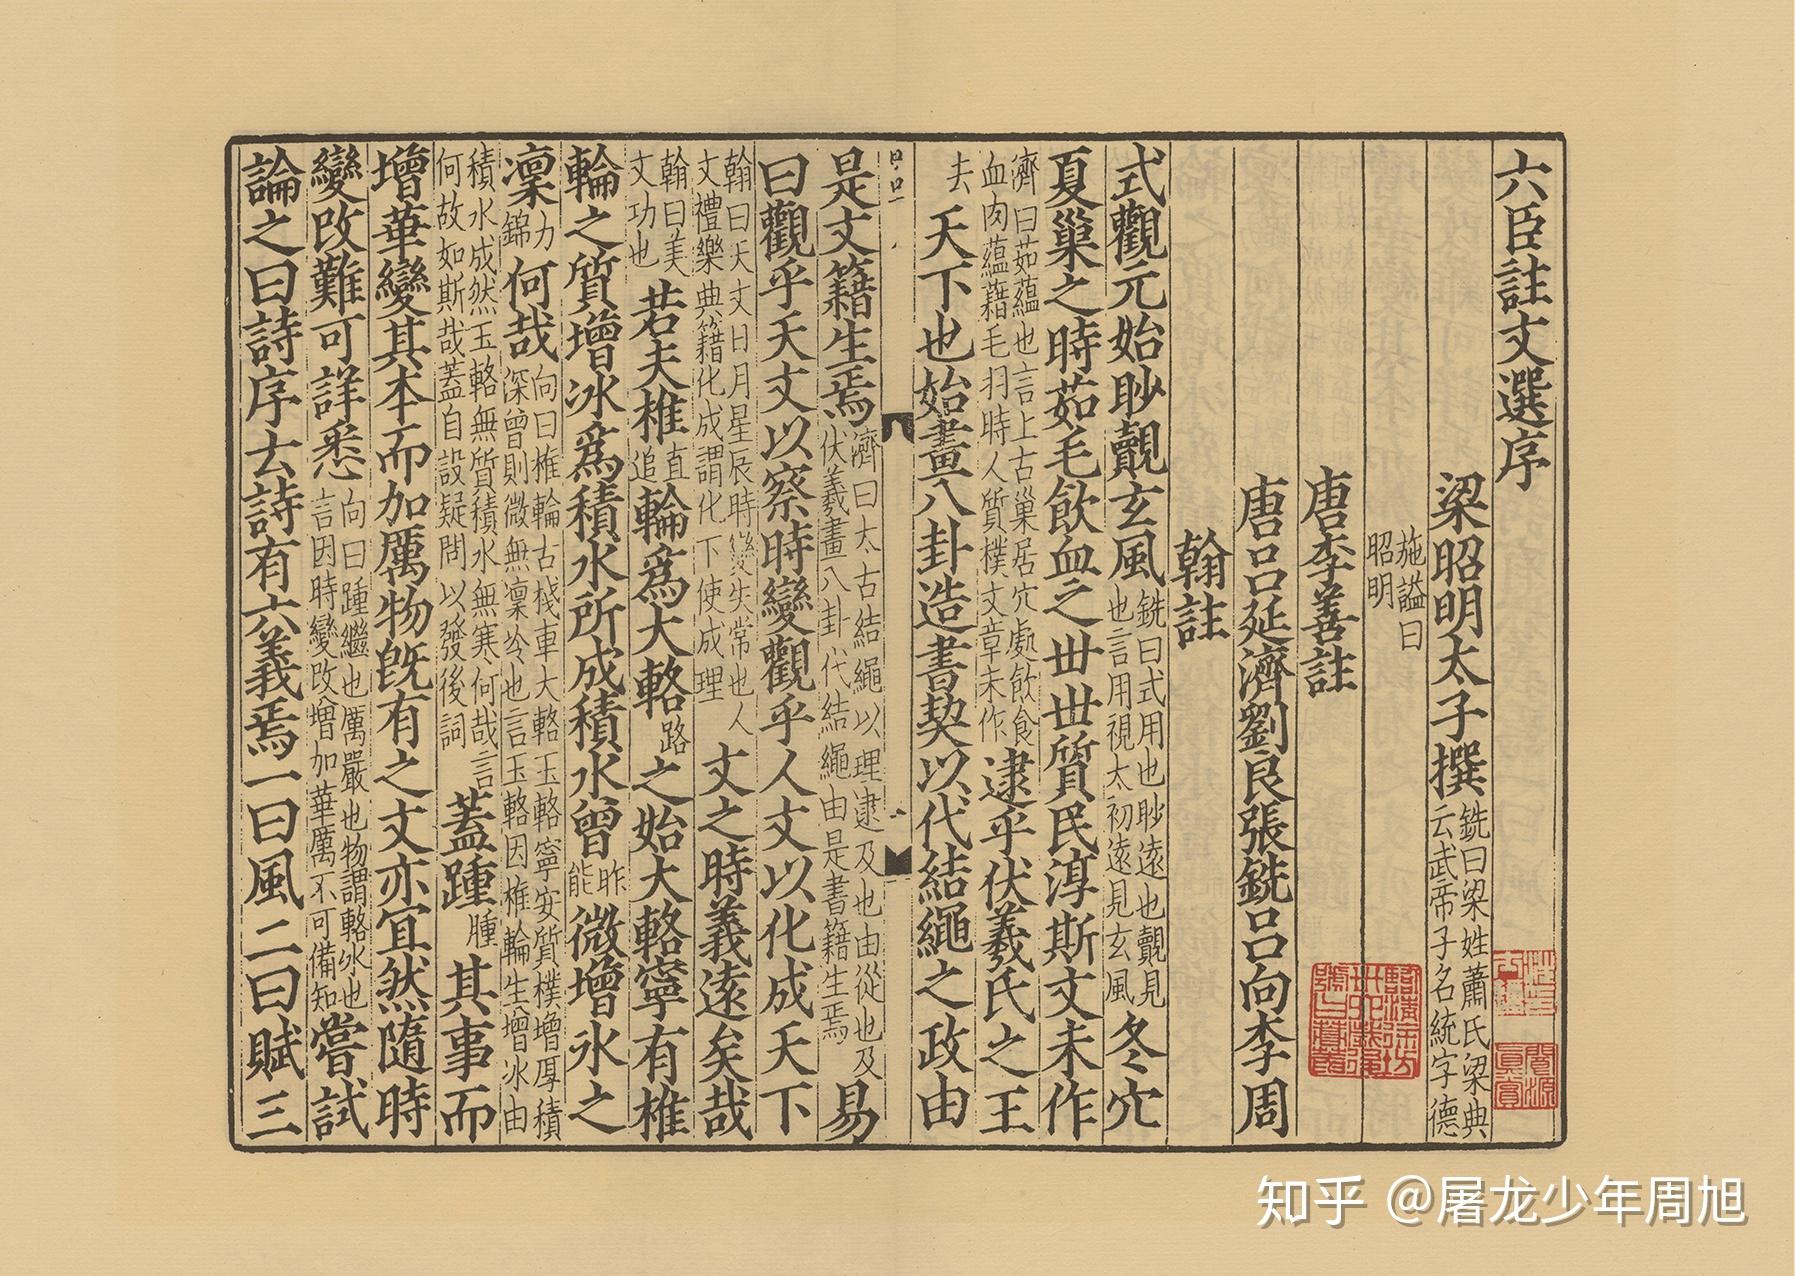 六臣註文選序
梁昭明太子撰銑曰梁姓蕭氏梁典云武帝子名統字德
施謚曰昭明
唐李善註
唐呂延濟劉良張銑呂向李周
翰註
式觀元始眇覿玄風銑曰式用也眇遠也覿見也言用視太初遠見玄風冬穴
夏巢之時茹毛飲血之世世質民淳斯文未作
濟曰茹蘊也言上古巢居穴處飲食血肉蘊藉毛羽時人質樸文章未作逮乎伏羲氏之王
去天下也始畫八卦造書契以代結繩之政由
是文籍生焉濟曰太古結繩以理逮及也由從也及伏羲畫八卦代結繩由是書籍生焉易
曰觀乎天文以察時變觀乎人文以化成天下
翰曰天文日月星辰時變失常也人文禮樂典籍化成謂化下使成理文之時義遠矣哉
翰曰美文功也若夫椎直追輪爲大輅路之始大輅寧有椎
輪之質增冰爲積水所成積水曾昨能微增冰之
凜力錦何哉向曰椎輪古棧車大輅玉輅寧安質樸增厚積深曾則微無凜冷也言玉輅因椎輪生增冰由
積水成然玉輅無質積水無寒何哉言何故如斯哉蓋自設疑問以發後詞蓋踵腫其事而
增華變其本而加厲物旣有之文亦宜然隨時
變改難可詳悉向曰踵繼也厲嚴也物謂輅冰也言因時變改增加華厲不可備知嘗試
論之曰詩序云詩有六義焉一曰風二曰賦三
知乎 @屠龙少年周旭